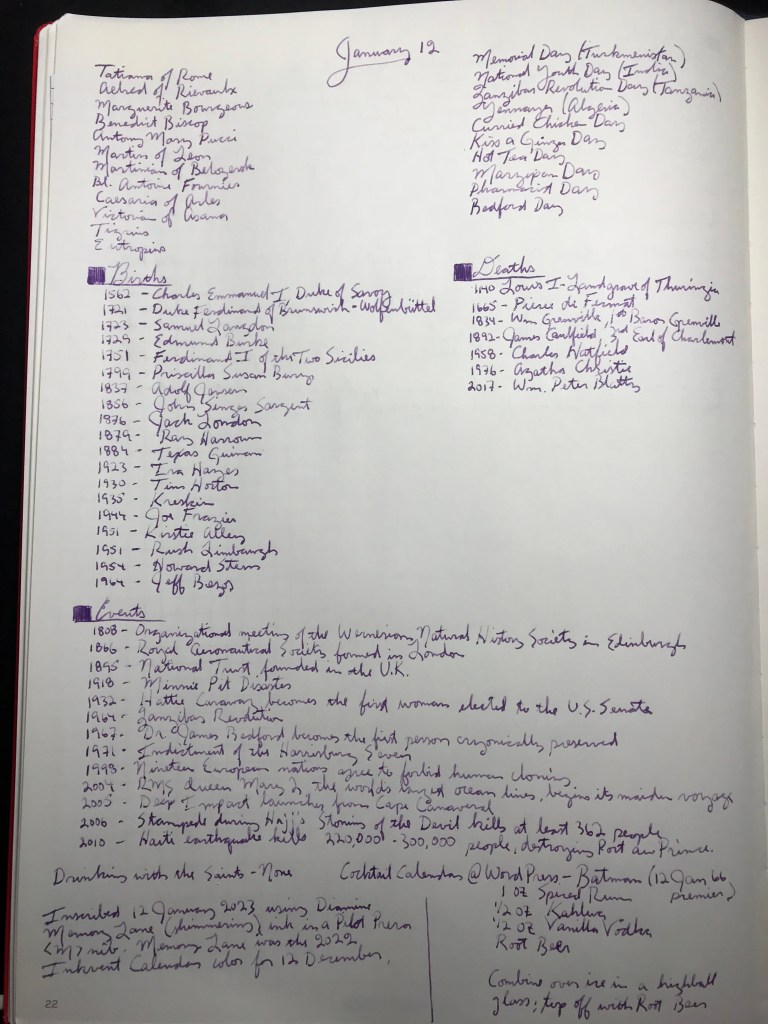 January 12
Tatiana of Rome
Aelred of Rievaulx
Marguerite Bourgeous
Benedict Biscop
Antony Mary Pucci
Martin of Leon
Martinian of Belozersk
Bl. Antoine Fournier
Caesaria of Arles
Victorian of Asana
Tigrius
Eutropius
Memorial Day (Turkmenistan)
National Youth Day (India)
Zanzibar Revolution Day (Tanzania)
Yennayer (Algeria)
Curried Chicken Day
Kiss a Ginger Day
Hot Tea Day
Marzipan Day
Pharmacist Day
Bedford Day
Births
1562 - Charles Emmanuel I, Duke of Savoy
1721 - Duke Ferdinand of Brunswick-Wolfenbüttel
1723 - Samuel Langdon
1729 - Edmund Burke
1751 - Ferdinand I of the Two Sicilies
1799 - Priscilla Susan Bury
1837 - Adolf Jensen
1856 - John Singer Sargent
1876 - Jack London
1879 - Ray Harroun
1884 - Texas Guinan
1923 - Ira Hayes
1930 - Tim Horton
1935 - Kreskin
1944 - Joe Frazier
1951 - Kirstie Alley
1951 - Rush Limbaugh
1954 - Howard Stern
1964 - Jeff Bezos
Deaths
1140 Louis I - Landgrave of Thuringia
1665 - Pierre de Fermat
1834 - Wm Grenville, 1st Baron Grenville
1892 - James Caulfield, 3rd Earl of Charlemont
1958 - Charles Hatfield
1976 - Agatha Christie
2017 - Wm. Peter Blatty
Events
1808 - Organizational meeting of the Wernerian Natural History Society in Edinburgh
1866 - Royal Aeronautical Society formed in London
1895 - National Trust founded in the U.K.
1918 - Minnie Pit Disaster
1932 - Hattie Caraway becomes the first woman elected to the U.S. Senate
1964 - Zanzibar Revolution
1967 - Dr. James Bedford becomes the first person cryonically preserved
1971 - Indictment of the Harrisburg Seven
1998 - Nineteen European nations agree to forbid human cloning
2004 - RMS Queen Mary 2, the world's largest ocean liner, begins its maiden voyage
2005 - Deep Impact launches from Cape Canaveral
2006 - Stampede during Hajj's Stoning of the Devil kills at least 362 people
2010 - Haiti earthquake kills 220,000 - 300,000 people, destroying Port au Prince.
Drinking with the Saints - None
Cocktail Calendar @ WordPress - Batman (12 Jan, 66 premier)
1 oz Spiced Rum
1/2 oz Kahlua
1/2 oz Vanilla Vodka
Root Beer
Combine over ice in a highball
glass; top off with Root Beer
Inscribed 12 January 2023 using Diamine
Memory Lane (shimmering) ink in a Pilot Prera
<M> nib. Memory Lane was the 2022
Inkvent Calendar color for 12 December.
22